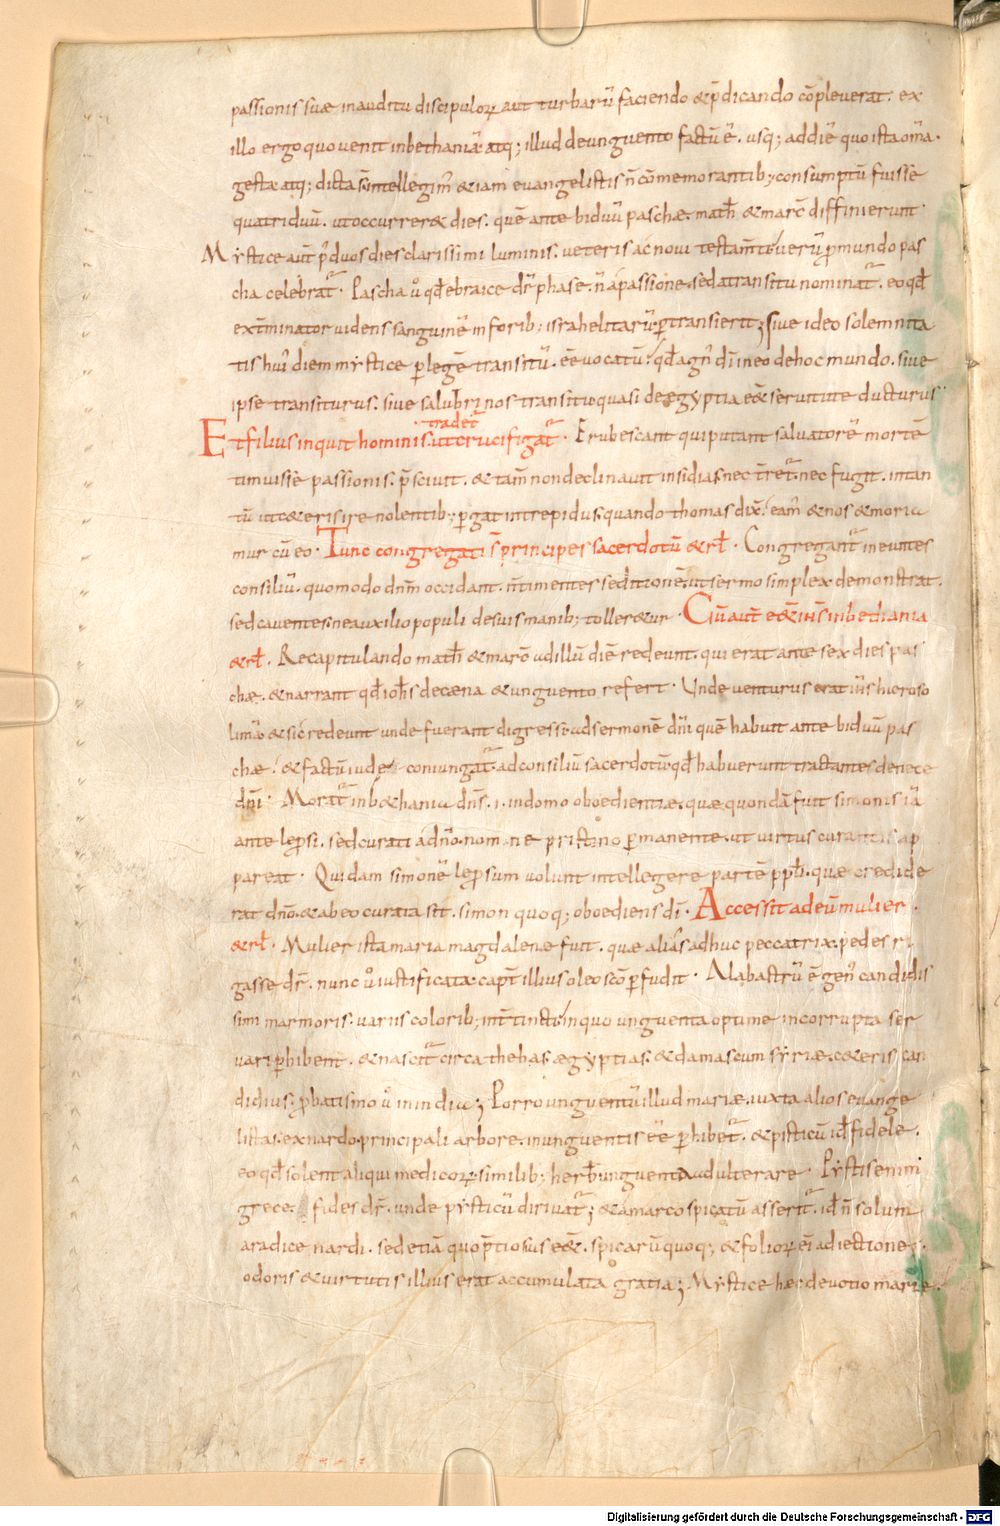 passionis suæ inauditu discipuloꝝ aut turbarū faciendo &p̄dicando cōpleuerat. ex
illo ergo quo uenit inbethaniā. atq; illud deunguento factū ē. usq; addiē quo ista om̄a.
gesta atq; dicta s̄. intellegim̄ &iam euangelistis n̄ cōmemorantib; consumptū fuisse
quatriduū. utoccurrer& dies. quē ante biduū paschæ. math̄ &marc̄ diffinierunt
Mystice aut̄ p̄duos dies clarissimi luminis. ueteris ac noui testam̄ti uerū ꝓmundo pas
cha celebrat᷒. Pascha ů qd̄ ebraice dr̄ phase. n̄ apassione. sed atransitu nominat᷒. eo qd̄
ext̄minator uidens sanguinē inforib; israhelitarū. ꝑtransierit; siue ideo solemnita
tis hui᷒ diem mystice ꝑlegē transitū. eē uocatū. qd̄ agn᷒ dī ineo dehoc mundo. siue
ipse transiturus. siue salubri nos transitu quasi deægyptia eā& seruitute ducturus
tradet᷒
Et filius inquit hominis ut crucifigat᷒. Erubescant qui putant saluatorē mortē
timuisse passionis. p̄sciuit. & tam̄ non declinauit insidias. nec t̄ret᷒. nec fugit. intan
tū ut c&eris ire nolentib; ꝑgat intrepidus. quando thomas dix̄. eam᷒ &nos & moria
mur cū eo. Tunc congregati s̄ principes sacerdotū &rl̄. Congregant᷒ ineuntes
consiliū. quomodo dn̄m occidant. n̄ timentes seditionē. ut sermo simplex demonstrat.
sed cauentes. ne auxilio populi desuis manib; toller&ur. Cū aut̄ e&̄ ih̄s inbethania
&rl̄. Recapitulando math̄ & marc̄ adillū diē redeunt. qui erat ante sex dies pas
chæ. & narrant qd̄ ioh̄s decæna & unguento refert. Unde uenturus erat ih̄s hieroso
limā. & sic redeunt unde fuerant digressi. ad sermonē dn̄i quē habuit ante biduū pas
chæ. & factū iudę coniungat᷒. adconsiliū sacerdotū. qd̄ habuerunt tractantes denece
dn̄i. Morat᷒ inb&hania dn̄s. i. indomo oboedientiæ. quæ quondā fuit simonis iā
ante lep̄si. sed curati a dn̄o. nomine pristino ꝑmanente. ut uirtus curantis ap
pareat. Quidam simonē lep̄sum uolunt intellegere partē p̄pl̄i. quæ credide
rat dn̄o. & abeo curata sit. simon quoq; oboediens dī. Accessit adeū mulier.
&rl̄. Mulier ista maria magdalenæ fuit. quæ aliās adhuc peccatrix. pedes ri
gasse dr̄. nunc ů iustificata. capt̄ illius oleo sc̄o ꝑfudit. Alabastrū ē gen᷒ candidis
simi marmoris. uariis colorib; int̄tincti. inquo unguenta optime incorrupta ser
uari ꝑhibent. & nascit᷒ circa thebas ægyptias. & damascum syriæ. c&eris can
didius. ꝓbatisimo ů inindia; Porro unguentū illud mariæ. iuxta alios euange
listas. exnardo. principali arbore. inunguentis eē ꝑhibet᷒. & pisticū id̄ fidele.
eo qd̄ solent aliqui medicoꝝ similib; herbis unguenta adulterare. Pystis enim
grece. fides dr̄. unde pysticū diriuat᷒; & amarco spicatū asserit᷒. id̄ n̄ solum
aradice nardi. sed etiā quo p̄tiosius e&̄. spicarū quoq; & folioꝝ ei adiectione.
odoris & uirtutis illius erat accumulata gratia; Mystice hæc deuotio mariæ.
Digitalisierung gefördert durch die Deutsche Forschungsgemeinschaft - DFG